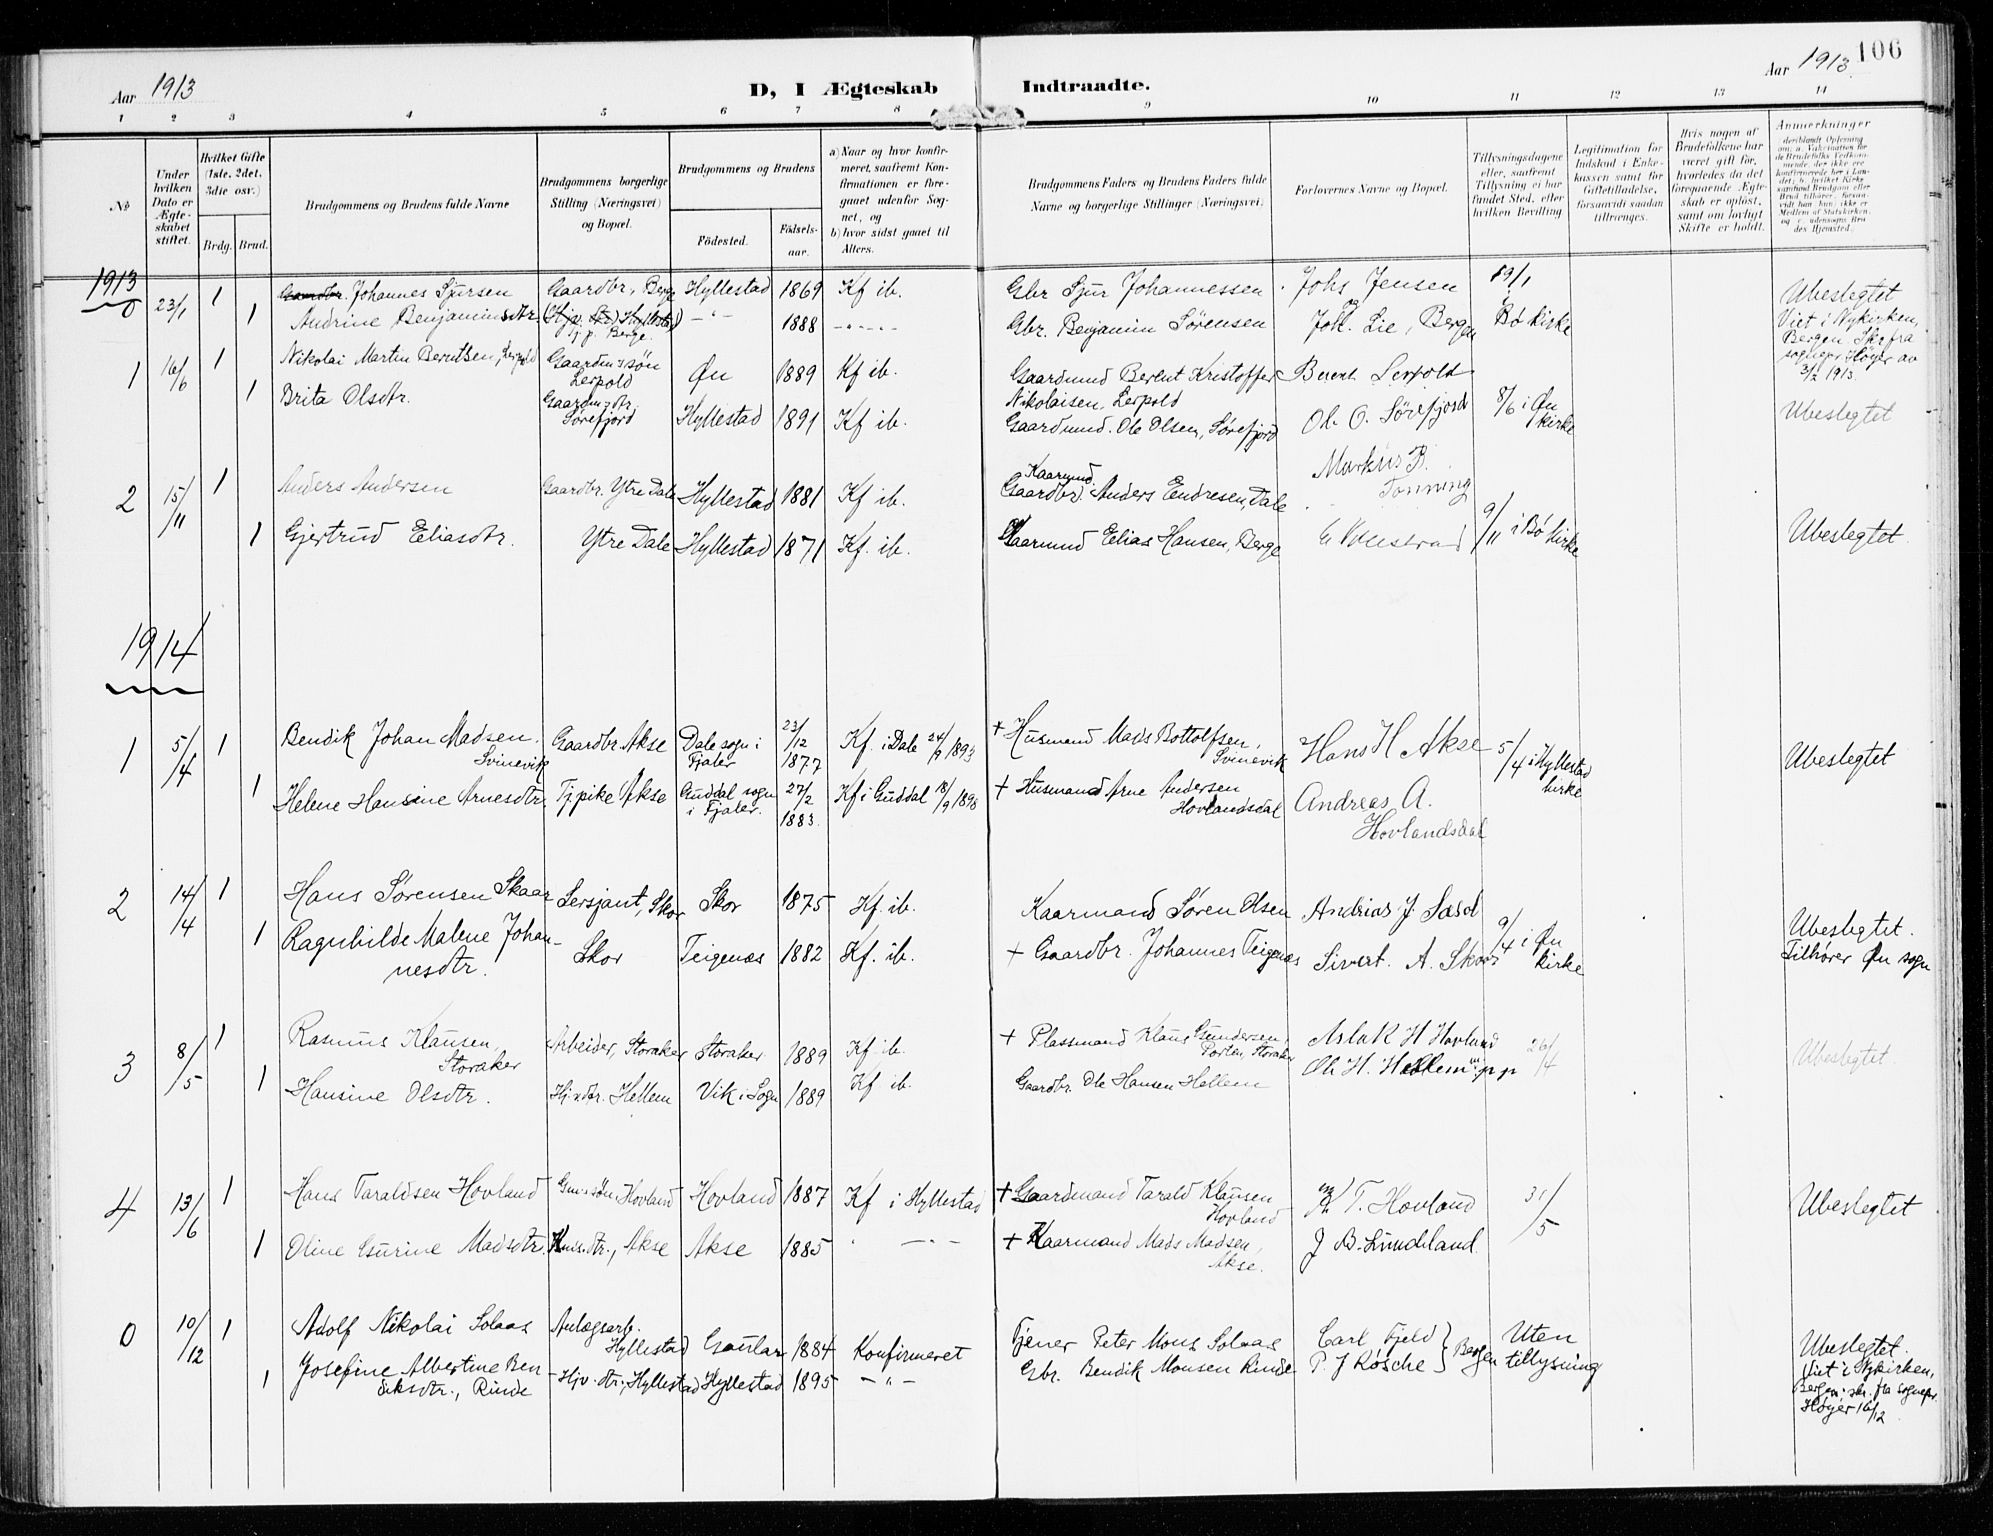 106
Aar 1913
D, I Ægteskab Indtraadte.
Aar 1913.
1 2 3 4 5 6 7 8 9 10 11 12 13 14
№
Under hvilken Dato er Ægteskabet stiftet.
Hvilket Gifte (1ste, 2det, 3die osv.)
Brdg. Brud.
Brudgommens og Brudens fulde Navne
Brudgommens borgerlige Stilling (Næringsvei) og Bopæl.
Brudgommens og Brudens
Födested.
Födselsaar.
a) Naar og hvor konfirmeret, saafremt Konfirmationen er foregaaet udenfor Sognet, og
b) hvor sidst gaaet til Alters.
Brudgommens Faders og Brudens Faders fulde Navne og borgerlige Stillinger (Næringsvei)
Forlovernes Navne og Bopæl.
Tillysningsdagene eller, saafremt Tillysning ei har fundet Sted, efter hvilken Bevilling
Legitimation for Indskud i Enkekassen samt for Giftetilladelse, forsaavidt saadan tiltrænges.
Hvis nogen af Brudefolkene har været gift för, hvorledes da det foregaaende Ægteskab er oplöst, samt om lovligt Skifte er holdt.
Anmerkninger
1913
0 23/1 1 Johannes Sjursen Gaardbr., Berge Hyllestad 1869 Kf ib. Gbr Sjur Johannessen Johs Jensen 19/1 Ubeslegtet
1 Andrine Benjaminsdtr. Berge. — " — 1888 — " — Gbr. Benjamin Sørensen Joh. Lie, Bergen i Bø kirke Viet i Nykirken, Bergen Skr fra sognepr Høyer av 3/2 1913.
1 16/6 1 Nikolai Martin Berntsen, Lerpold Gaardm.ssøn Lerpold Øn 1889 Kf ib. Gaardmand Berent Kristoffer Nikolaisen, Lerpold Berent Lerpold 8/6 i Øn kirke
1 Brita Olsdtr. Gaardm.dtr. Sørefjord Hyllestad 1891 Kf ib. Gaardmand. Ole Olsen, Sørefjord Ol. O. Sørefjord Ubeslegtet
2 15/11 1 Anders Andersen Gaardbr. Ytre Dale Hyllestad 1881 Kf ib. Kaarmd. Anders Endresen, Dale Markus B. Tonning 9/11 i Bø kirke
1 Gjertrud Eliasdtr. Ytre Dale Hyllestad 1871 Kf. ib. Kaarmand Elias Hansen, Berge Ubeslegtet.
1914
1 5/4 1 Bendik Johan Madsen. Svinevik Gaardbr. Akse Dale sogn i Fjaler 23/12 1877 Kf. i Dale 24/9 1893 + Husmand Mads Bottolfsen, Svinevik Hans H Akse 5/4 i Hyllestad kirke Ubeslegtet
1 Helene Hansine Arnesdtr. Tj.pike Akse Guddal sogn i Fjaler. 27/2 1883. Kf i Guddal 18/9 1898 + Husmand Arne Andersen Hovlandsdal Andreas A. Hovlandsdal
2 14/4 1 Hans Sørensen Skaar Sersjant, Skor Skor 1875 Kf. ib. Kaarmand Søren Olsen Andrias J. Sæsol 9/4 i Øn kirke Ubeslegtet.
1 Ragnhilde Malene Johannesdtr. Skor Teigenæs 1882 Kf. ib. + Gaardbr. Johannes Teigenæs Sivert. A. Skor Tilhører Øn sogn
3 8/5 1 Rasmus Klausen, Storaker Arbeider, Storaker Storaker 1889 Kf ib. + Plassmand Klaus Gundersen, Porten, Storaker Aslak H Hovland 26/4 Ubeslegtet
1 Hansine Olsdtr. Hj.vdtr. Hellem Vik i Sogn 1889 Kf ib. Gaardbr. Ole Hansen Hellem Ol H. Hellem m p p
4 13/6 1 Hans Taraldsen Hovland Gm.ssøn, Hovland Hovland 1887 Kf i Hyllestad + Gaardmand Tarald Klausen Hovland T. Hovland 31/5 Ubeslegtet
1 Oline Gurine Madsdtr. Km.dtr., Akse Akse 1885 — " — + Kaarmand Mads Madsen, Akse. J B. Lundeland
0 10/12 1 Adolf Nikolai Solaas Anlægsarb. Hyllestad Gaular 1884 Konfirmeret Tjener Peter Mons Solaas Carl Fjeld Bergen Uten tillysning Ubeslegtet.
1 Josefine Albertine Bendiksdtr., Rinde Hjv. dtr., Hyllestad Hyllestad 1895 — " — Gbr. Bendik Monsen Rinde P. J Røsche Viet i Nykirken, Bergen, skr. fra sognepr. Høyer 16/12